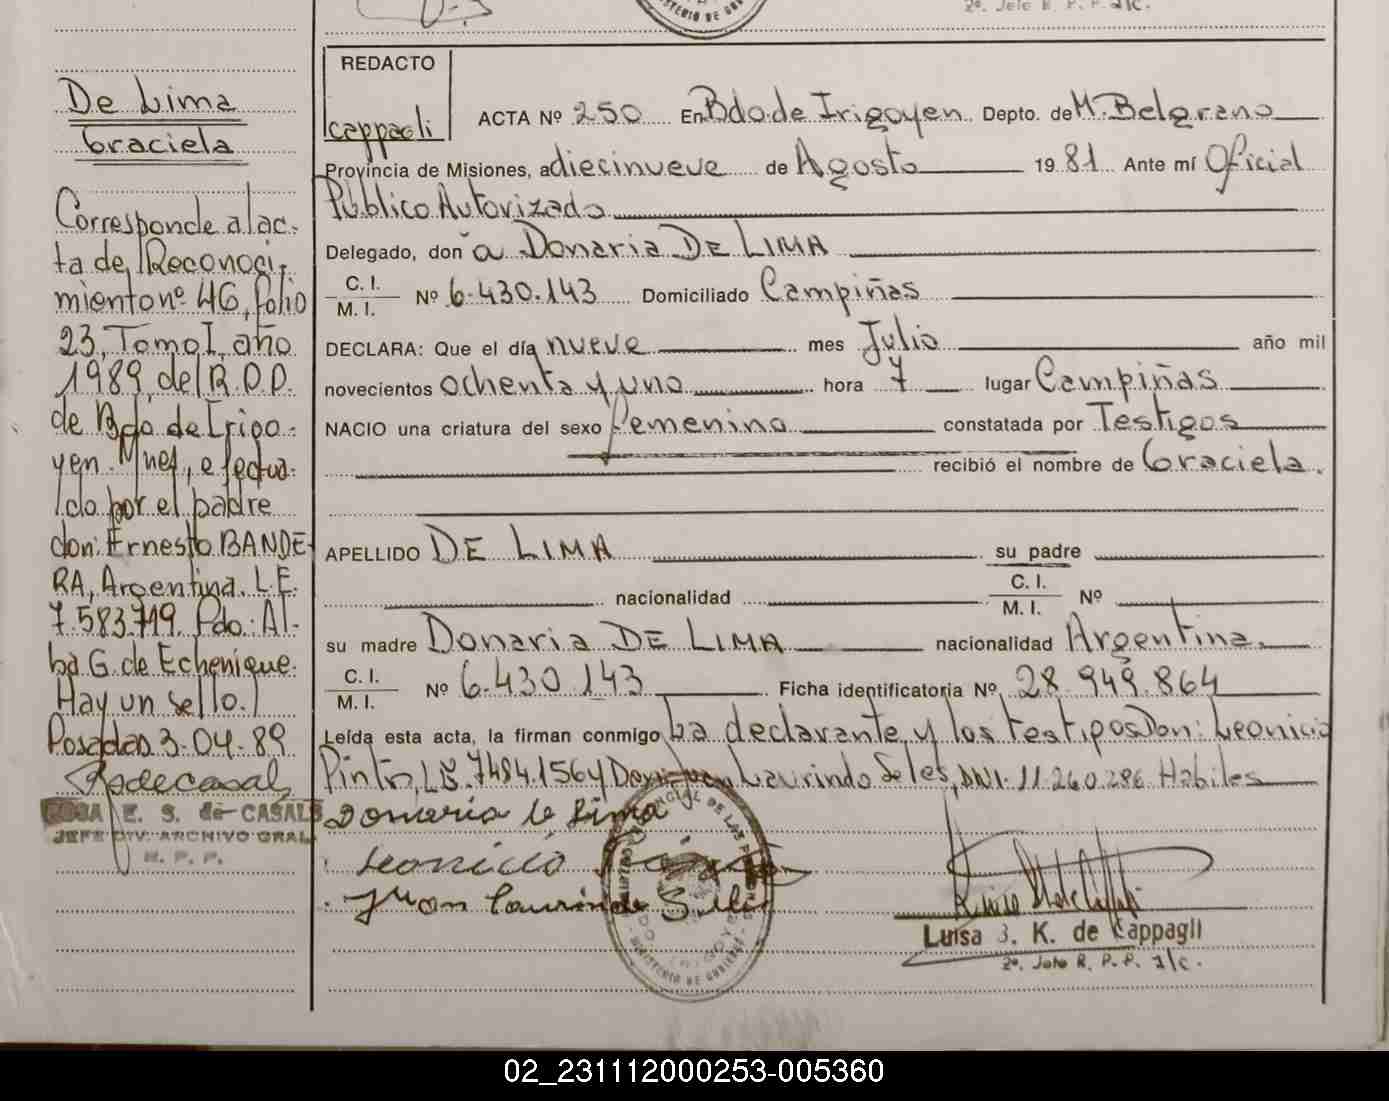 2º. Jefe R. P. P. a/c.
MINISTERIO DE GO
De Lima
Graciela
Corresponde al ac-
ta de Reconoci-
miento nº 46, folio
23, Tomo I, año
1989, del R.P.P.
de Bdo de Irigo-
yen. Mnes, efectua-
do por el padre
don: Ernesto BANDE-
RA, Argentina. L.E.
7.583.719. Fdo: Al-
ba G. de Echenique.
Hay un sello.
Posadas 3-04-89
Rodecasals
ROSA E. S. de CASALS
JEFE DIV. ARCHIVO GRAL.
R. P. P.
REDACTO
Cappagli
ACTA Nº 250 En Bdo. de Irigoyen Depto. de M. Belgrano
Provincia de Misiones, a diecinueve de Agosto 1981 Ante mí Oficial
Público Autorizado
Delegado, don ª Donaria DE LIMA
C. I.
M. I. Nº 6.430.143 Domiciliado Campiñas
DECLARA: Que el día nueve mes Julio año mil
novecientos ochenta y uno hora 7 lugar Campiñas
NACIO una criatura del sexo femenino constatada por Testigos
recibió el nombre de Graciela.
APELLIDO DE LIMA su padre
nacionalidad C. I.
M. I. Nº
su madre Donaria DE LIMA nacionalidad Argentina.
C. I.
M. I. Nº 6.430.143 Ficha identificatoria Nº 28.949.864
Leída esta acta, la firman conmigo La declarante y los testigos Don: Leonicio
Pinto, L.E. 7484.156 y Don Juan Laurindo Seles, DNI. 11.260.286 Habiles
Donaria de Lima
Leonicio
Juan Laurindo
Luisa B. K. de Cappagli
2º. Jefe R. P. P. a/c.
02_231112000253-005360